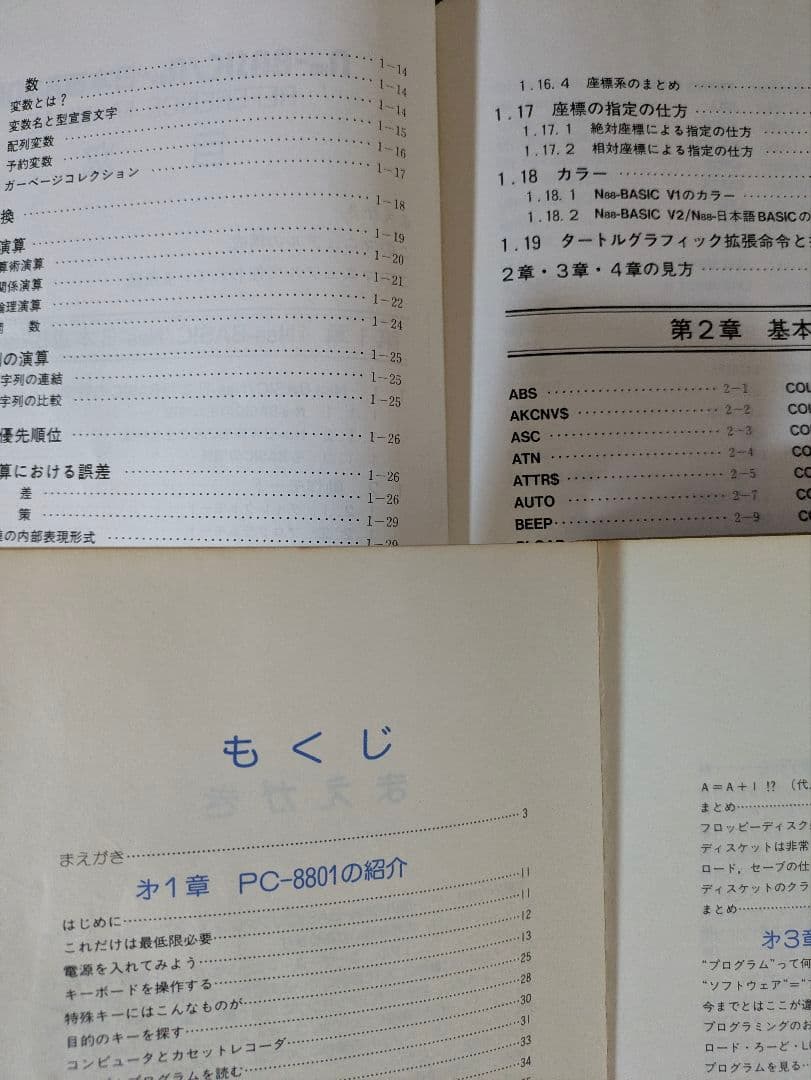 数 1-14
変数とは？ 1-14
変数名と型宣言文字 1-14
配列変数 1-15
予約変数 1-16
ガーベージコレクション 1-17
換 1-18
演算 1-19
算術演算 1-20
関係演算 1-21
論理演算 1-22
関 数 1-24
列の演算 1-25
字列の連結 1-25
字列の比較 1-25
優先順位 1-26
算における誤差 1-26
差 1-26
策 1-29
の内部表現形式 1-29
1.16.4 座標系のまとめ
1.17 座標の指定の仕方
1.17.1 絶対座標による指定の仕方
1.17.2 相対座標による指定の仕方
1.18 カラー
1.18.1 N88-BASIC V1のカラー
1.18.2 N88-BASIC V2/N88-日本語BASICの
1.19 タートルグラフィック拡張命令と
2章・3章・4章の見方
第2章 基本
ABS 2-1
AKCNV$ 2-2
ASC 2-3
ATN 2-4
ATTR$ 2-5
AUTO 2-7
BEEP 2-9
もくじ
まえがき 3
第1章 PC-8801の紹介
はじめに 11
これだけは最低限必要 11
電源を入れてみよう 12
キーボードを操作する 13
特殊キーにはこんなものが 25
目的のキーを探す 28
コンピュータとカセットレコーダ 30
プログラムを読む 31
33
34
A＝A＋1 !? （代
まとめ
フロッピーディスク
ディスケットは非常
ロード，セーブの仕
ディスケットのクラ
まとめ
第3章
“プログラム”って何
“ソフトウェア”＝“
今までとはここが違
プログラミングのお
ロード・ろーど・L
プログラムを見る